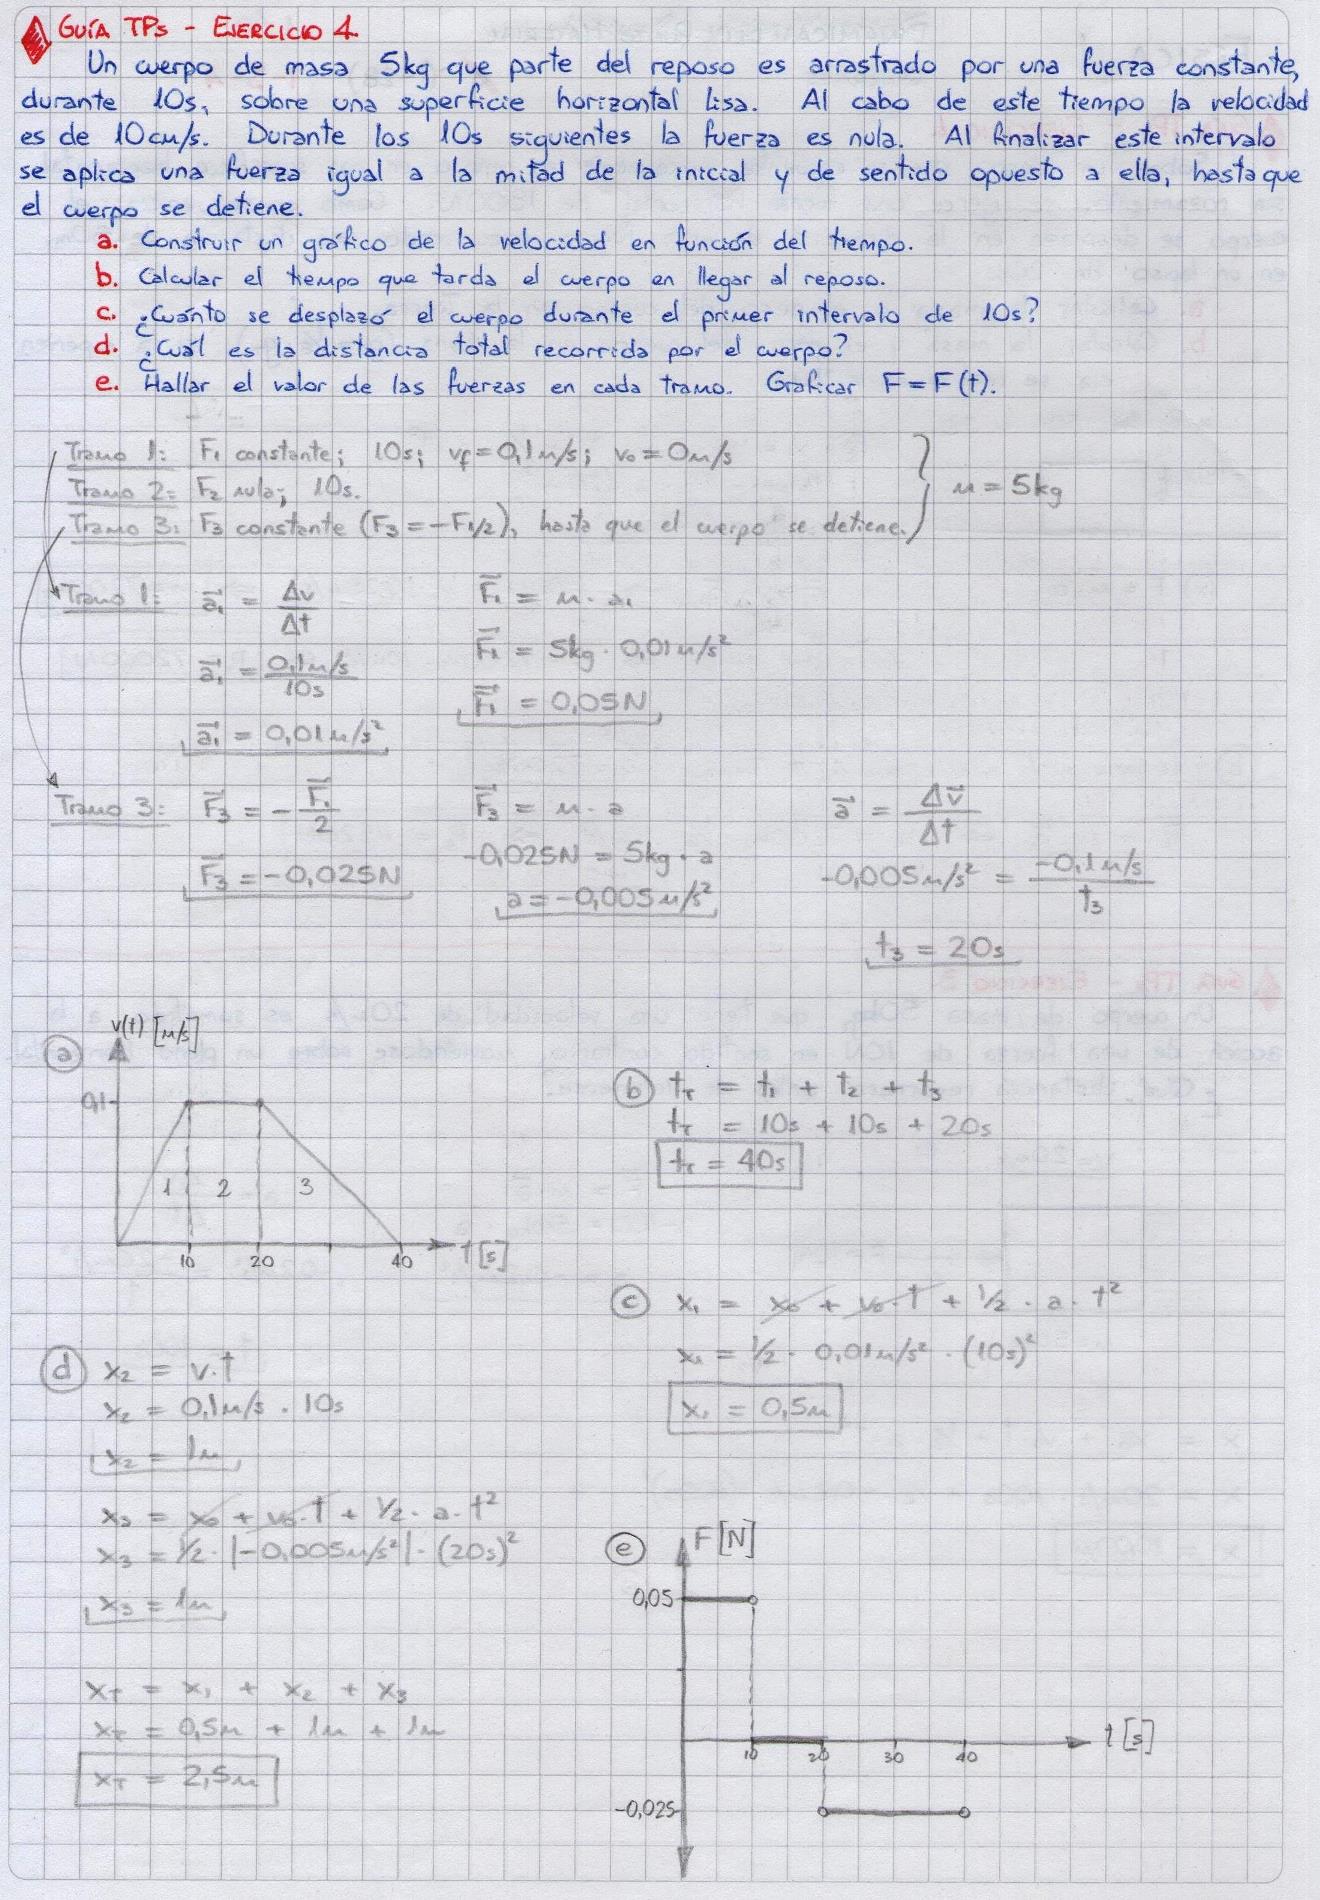 GUÍA TPs - EJERCICIO 4.
Un cuerpo de masa 5kg que parte del reposo es arrastrado por una fuerza constante,
durante 10s, sobre una superficie horizontal lisa. Al cabo de este tiempo la velocidad
es de 10cm/s. Durante los 10s siguientes la fuerza es nula. Al finalizar este intervalo
se aplica una fuerza igual a la mitad de la inicial y de sentido opuesto a ella, hasta que
el cuerpo se detiene.
a. Construir un gráfico de la velocidad en función del tiempo.
b. Calcular el tiempo que tarda el cuerpo en llegar al reposo.
c. ¿Cuánto se desplazó el cuerpo durante el primer intervalo de 10s?
d. ¿Cuál es la distancia total recorrida por el cuerpo?
e. Hallar el valor de las fuerzas en cada tramo. Graficar F = F(t).
Tramo 1: F₁ constante; 10s; vf = 0,1m/s; v₀ = 0m/s
Tramo 2: F₂ nula; 10s.
m = 5kg
Tramo 3: F₃ constante (F₃ = -F₁/2), hasta que el cuerpo se detiene.
Tramo 1: a₁ = Δv/Δt F₁ = m · a₁
F₁ = 5kg · 0,01m/s²
a₁ = 0,1m/s / 10s
F₁ = 0,05N
a₁ = 0,01m/s²
Tramo 3: F₃ = -F₁/2 F₃ = m · a a = Δv/Δt
-0,025N = 5kg · a
F₃ = -0,025N -0,005m/s² = -0,1m/s / t₃
a = -0,005m/s²
t₃ = 20s
a v(t) [m/s]
0,1
1 2 3
10 20 40 t[s]
b tT = t₁ + t₂ + t₃
tT = 10s + 10s + 20s
tT = 40s
c x₁ = x₀ + v₀·t + 1/2 · a · t²
x₁ = 1/2 · 0,01m/s² · (10s)²
x₁ = 0,5m
d x₂ = v.t
x₂ = 0,1m/s . 10s
x₂ = 1m
x₃ = x₀ + v₀.t + 1/2 · a · t²
x₃ = 1/2 · |-0,005m/s²| · (20s)²
x₃ = 1m
xT = x₁ + x₂ + x₃
xT = 0,5m + 1m + 1m
xT = 2,5m
e F[N]
0,05
10 20 30 40 t[s]
-0,025